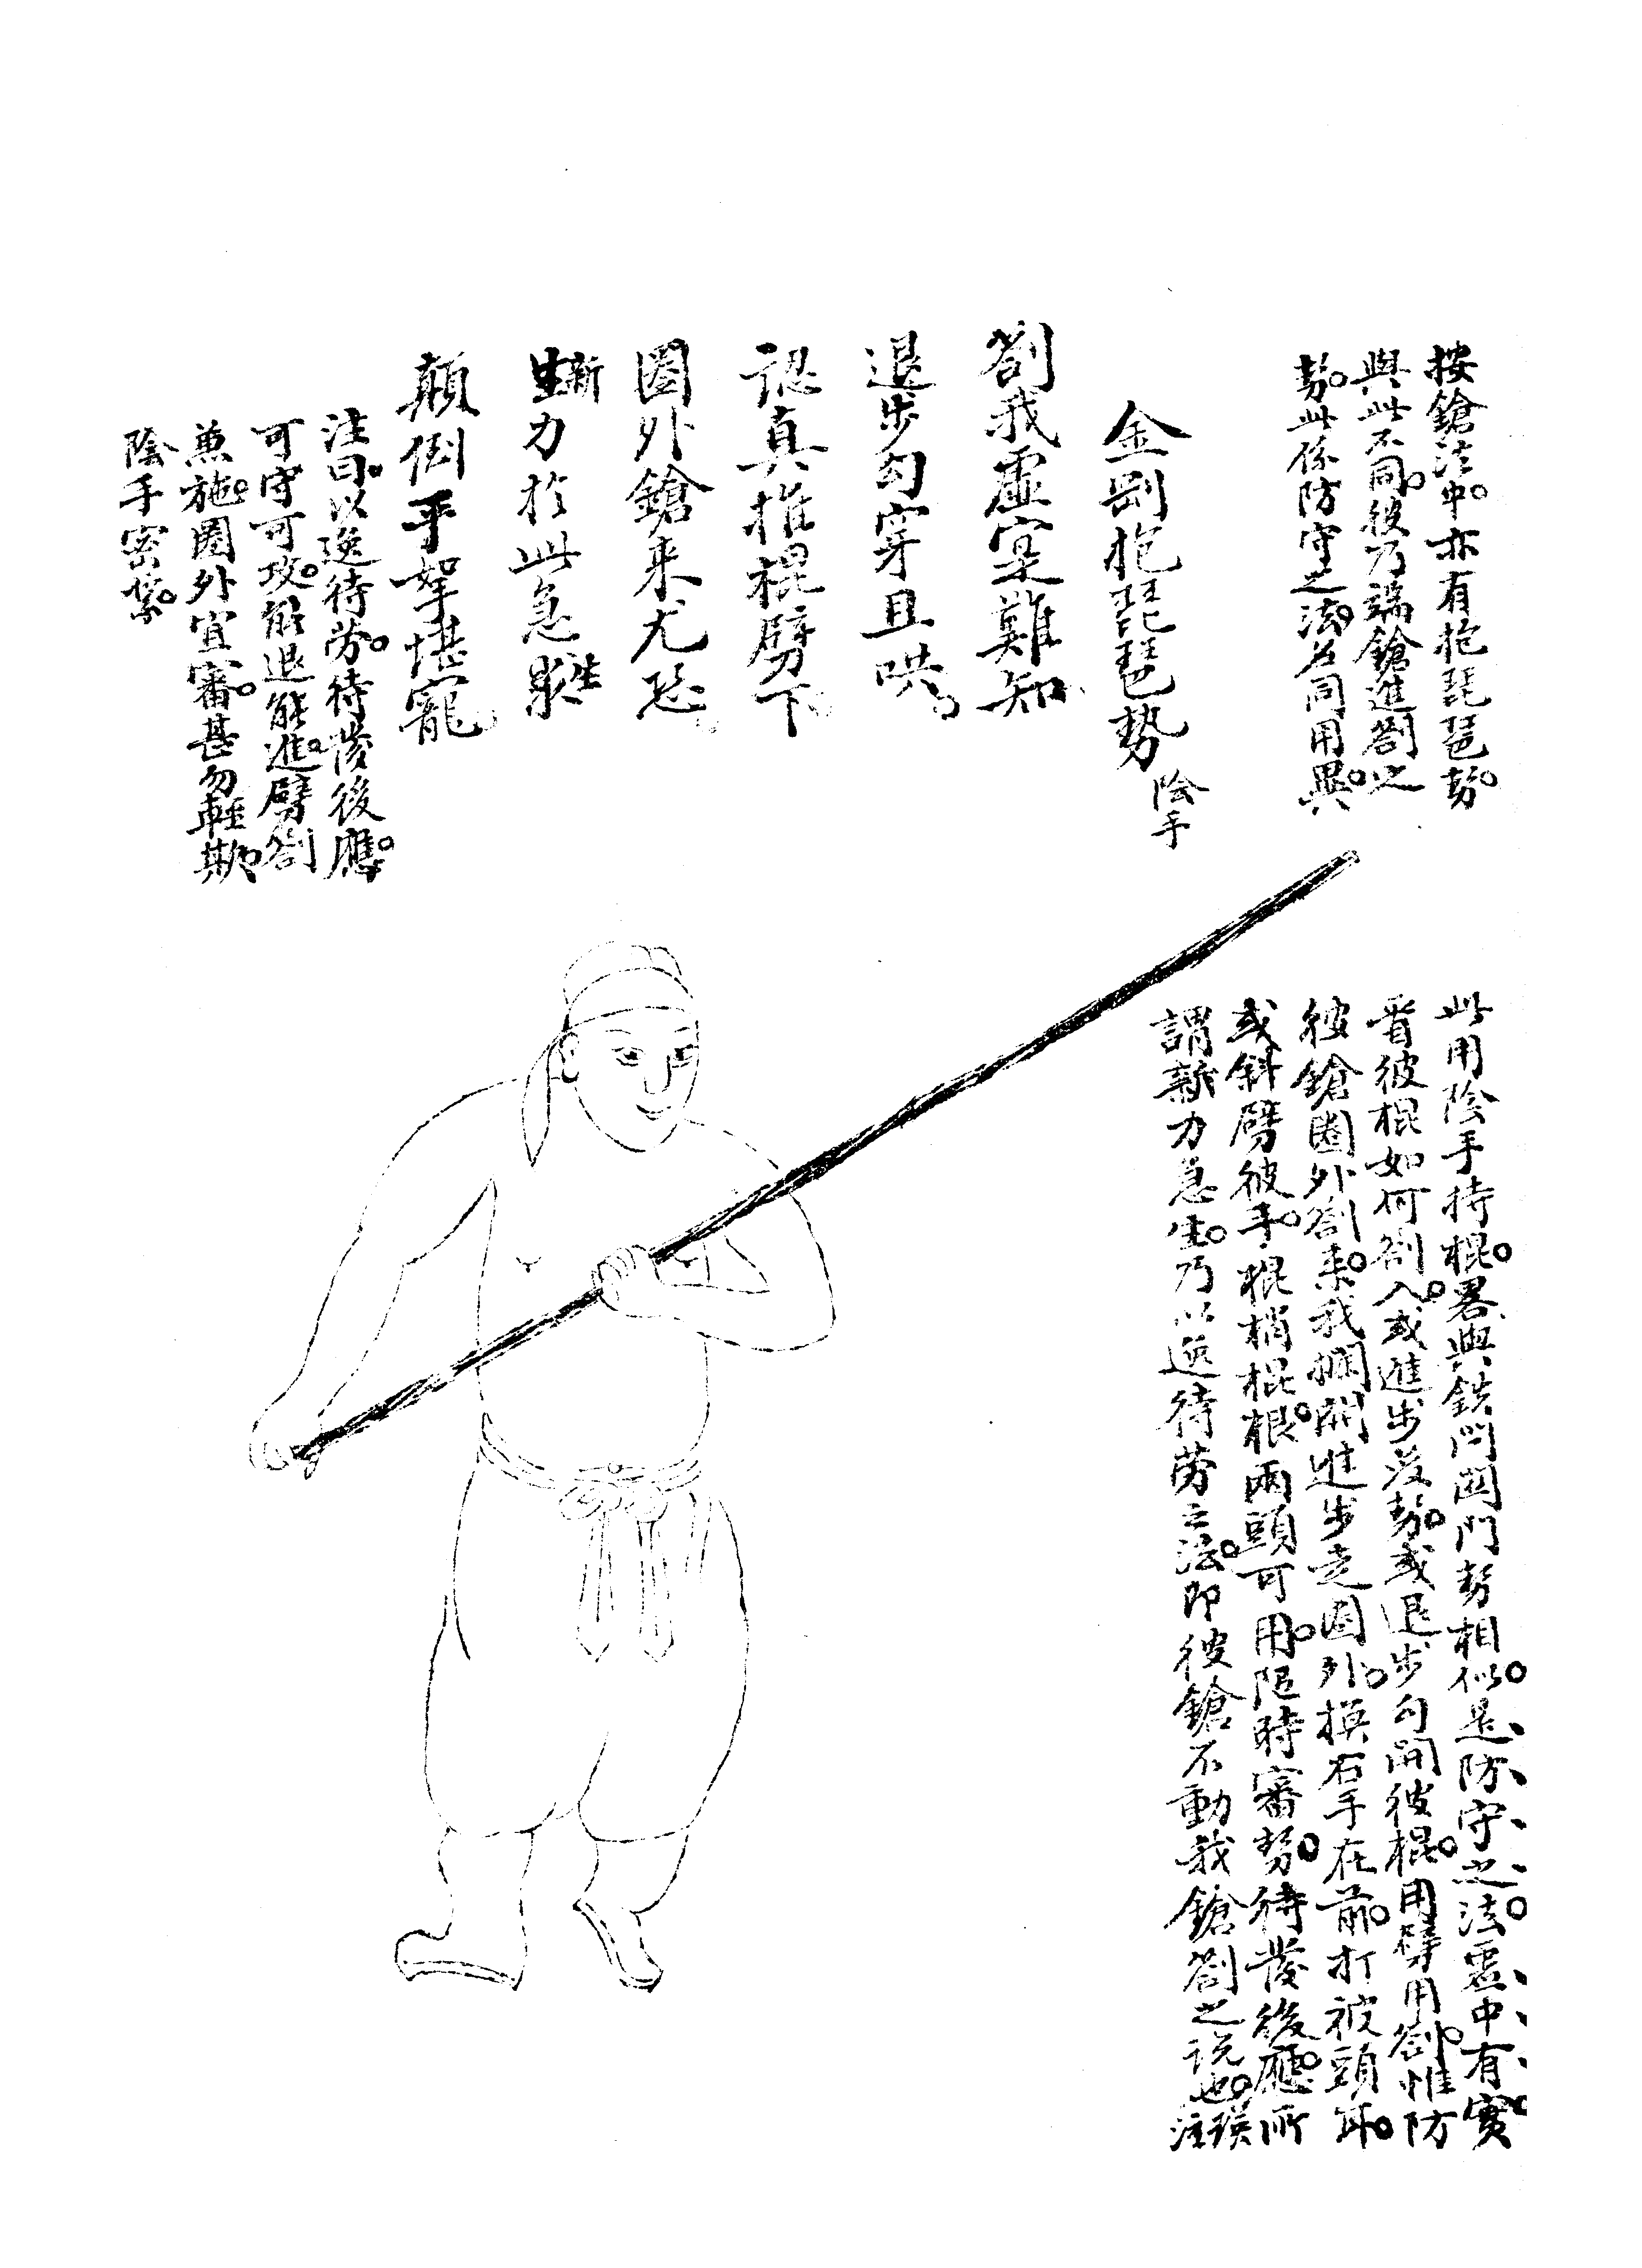 按鎗法中。亦有抱琵琶勢。
與此不同。彼乃端鎗進劄之
勢。此係防守之法。名同用異。
金剛抱琵琶勢 陰手
劄我虛實難知
退步勾穿且哄
認真推棍劈下
圈外鎗來尤恐
新力於此急生
顛倒平拏堪寵
注曰。以逸待勞。待發後應。
可守可攻。能退能進。劈劄
兼施。圈外宜審。甚勿輕欺。
陰手密紮。
此用陰手持棍。畧與鉄閂関門勢相似。是防守之法。虛中有實。
看彼棍如何劄入。或進步發勢。或退步勾開彼棍。用劈用劄。惟防
彼鎗圈外劄來。我攔開進步走圈外。換右手在前。打彼頭耳。
或斜劈彼手。棍梢棍根。兩頭可用。隨時審勢。待發後應。所
謂新力急生。乃以逸待勞之法。即彼鎗不動我鎗劄之說也。瑛注